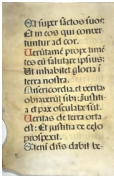 Et super sãctos suos:
Et in eos qui conver
tuntur ad cor.
Veritãmẽ prope timẽ
tes eũ salutare ipsius:
Ut inhabitet gloria ĩ
terra nostra.
Misericordia et veritas
obviaverũt sibi: Justiti
a et pax osculate sũt.
Veritas de terra orta
est: Et justitia de celo
prospexit.
Eteni dñs dabit be